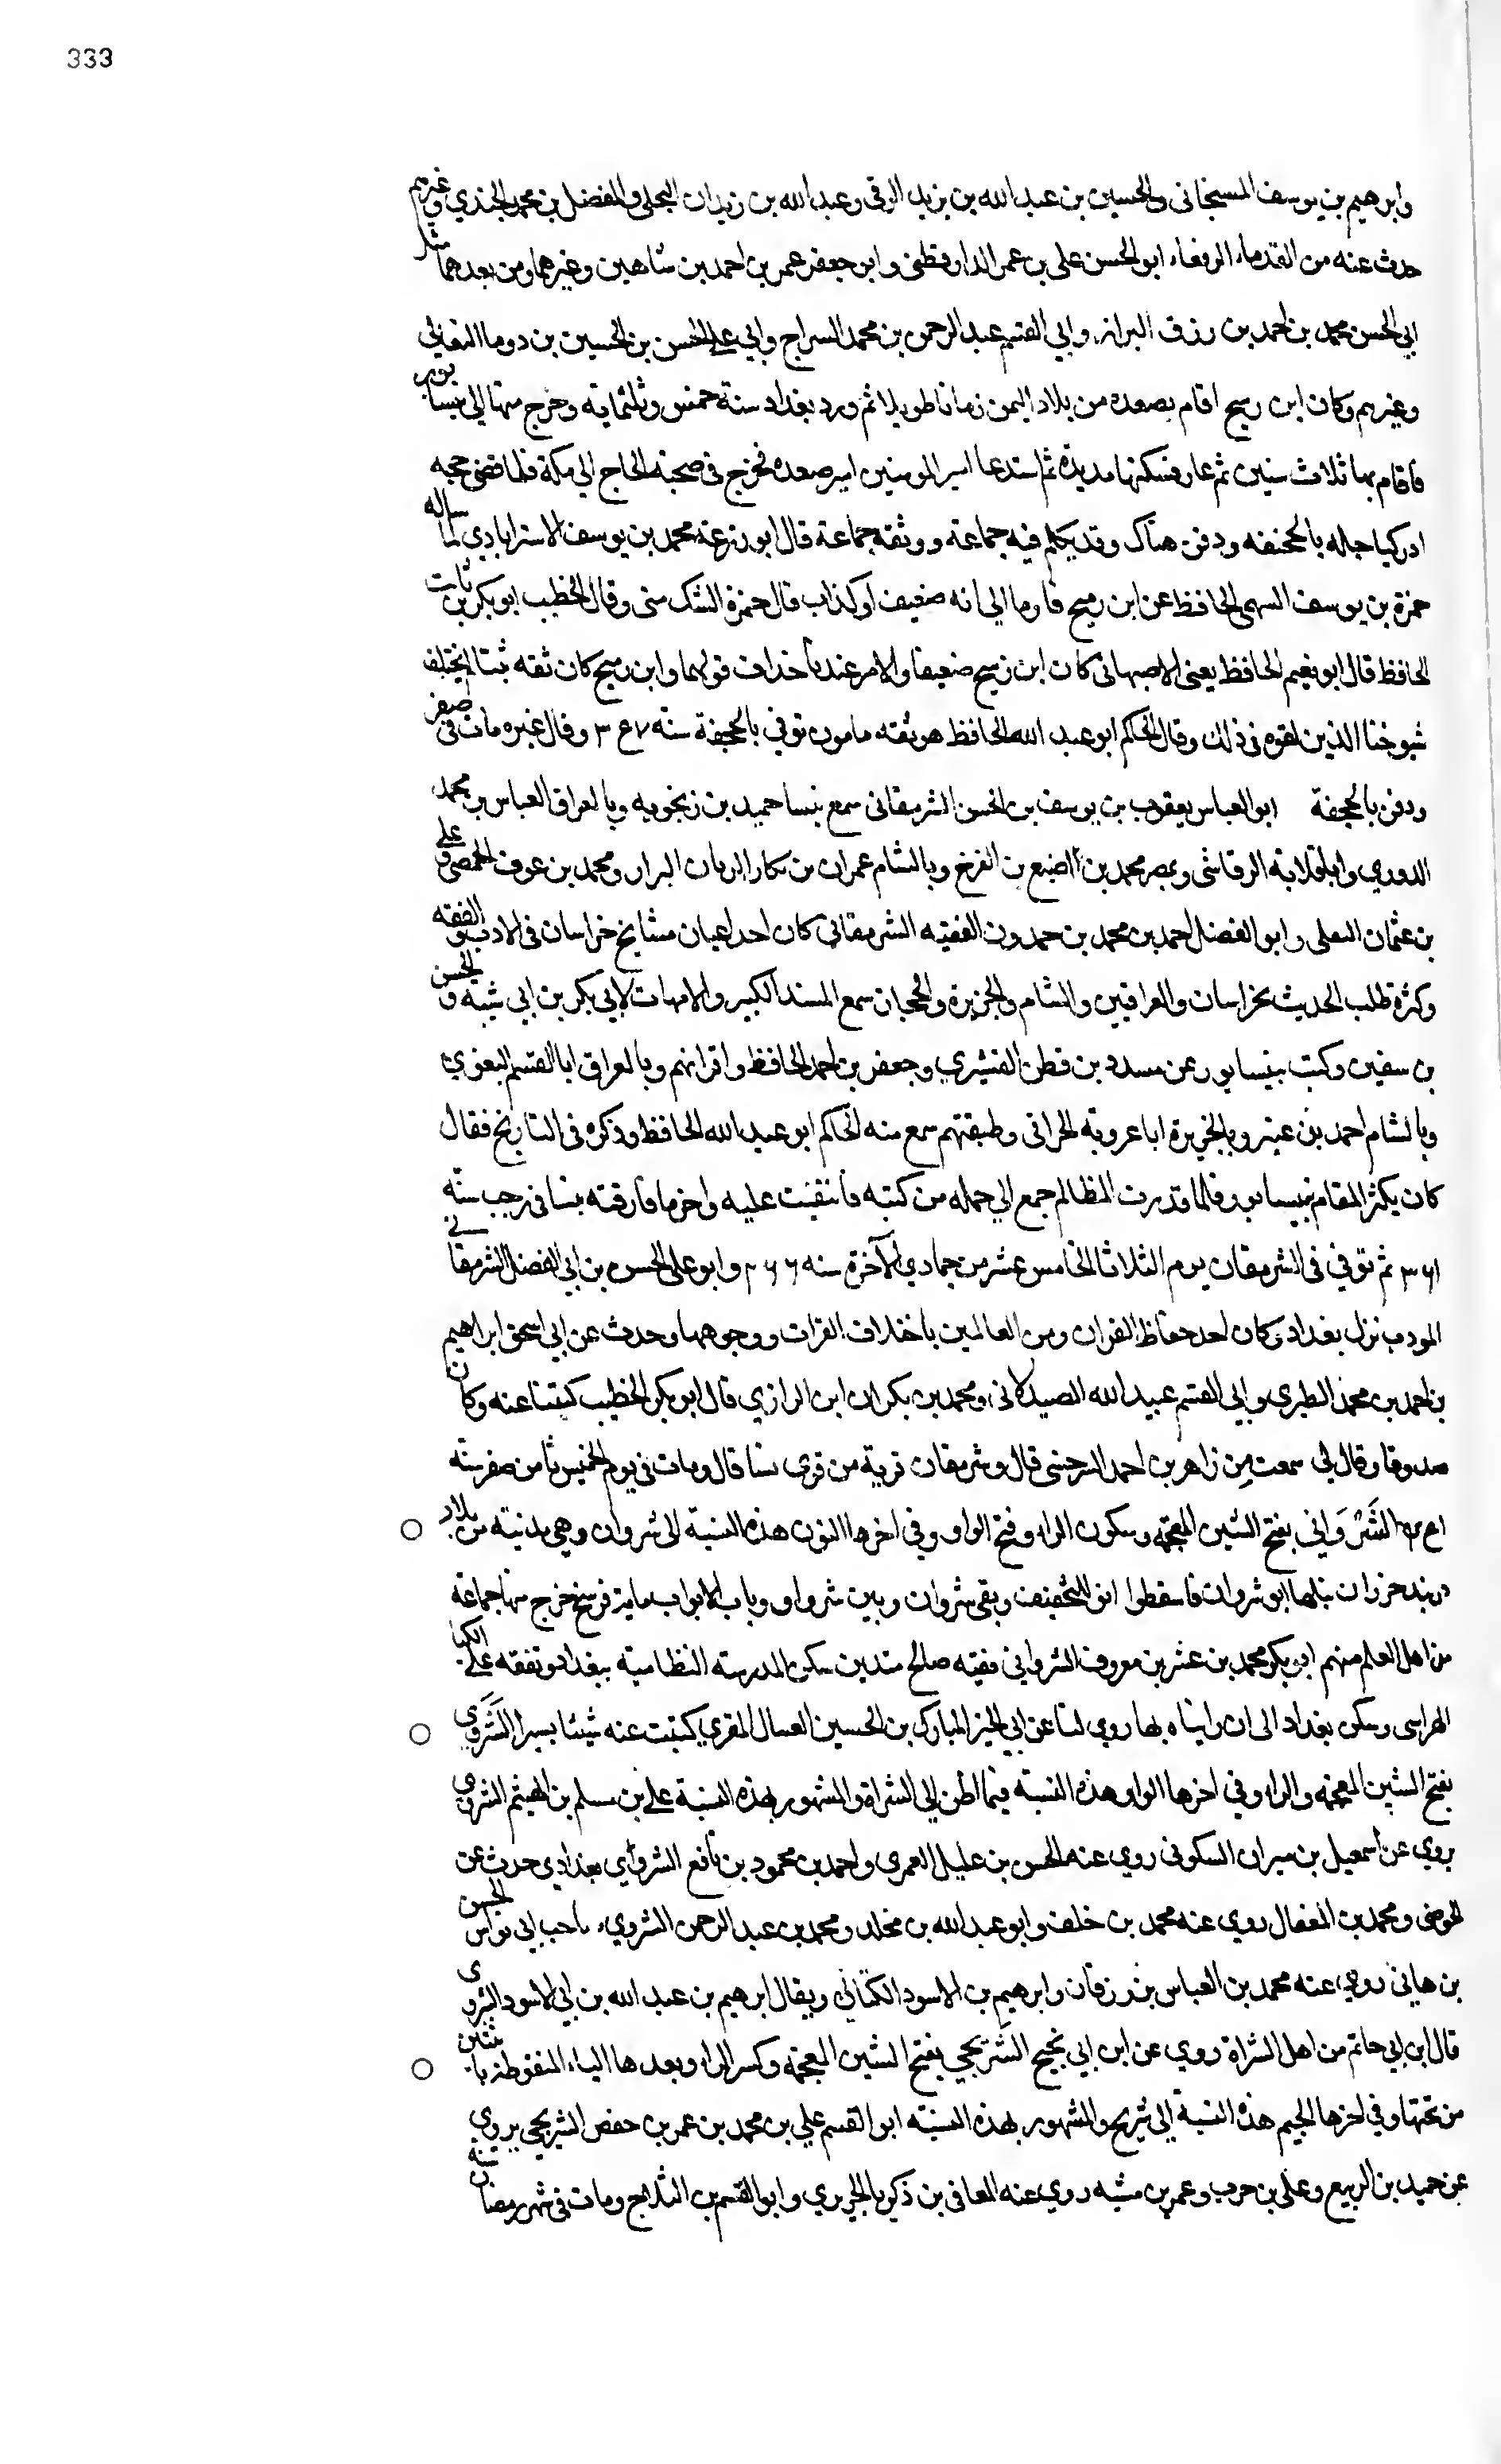 333
وابرهيم بن يوسف الهسنجانى والحسين بن عبد الله بن يزيد الرقى وعبد الله بن زيدان البجلى والمفضل بن محمد الجندي وغيرهم
حدث عنه من القدماء الرفعاء ابو الحسن على بن عمر الدارقطنى وابن جعفر عمر بن احمد بن شاهين وغيرهما ومن بعدهما مثل
ابي الحسن محمد بن احمد بن رزق البزاز وابي القسم عبد الرحمن بن محمد السراج وابي على الحسن بن الحسين بن دوما النعالي
وغيرهم وكان ابن رميح اقام بصعده من بلاد اليمن زمانا طويلا ثم ورد بغداد سنة خمس وثلثماية وخرج منها الي نيسابور
فاقام بها ثلاث سنين ثم عاد فسكنها مديدة ثم استدعا امير المومنين امير صعده فخرج فى صحبة الحاج الي مكة فلما قضى حجه
ادركه اجله بالجحفه ودفن هناك وقد تكلم فيه جماعة ووثقه جماعة قال ابو زرعة محمد بن يوسف الاسترابادي لما ساله
حمزة بن يوسف السهمى الحافظ عن ابن رميح فاوما الي انه ضعيف او كذاب قال حمزة الشك منى وقال الخطيب ابو بكر بن ثابت
الحافظ قال ابو نعيم الحافظ يعنى الاصبهانى كان ابن رميح ضعيفا والامر عندنا بخلاف قولهما وابن رميح كان ثقه ثبتا لم يختلف
شيوخنا الذين لقوه فى ذلك وقال الحاكم ابو عبد الله الحافظ هو ثقه مامون توفي بالجحفة سنه ٣٥٧ وقال غيره مات فى صفر
ودفن بالجحفة ابو العباس يعقوب بن يوسف بن الحسن الشرمقانى سمع بنسا حميد بن زنجويه وبالعراق العباس بن محمد
الدوري وابا قلابة الرقاشى وبمصر محمد بن اصبغ بن الفرج وبالشام عمران بن بكار البراد ومحمد بن عوف الحمصى وعلى
بن عثمان النفيلى وابو الفضل احمد بن محمد بن حمدون الفقيه الشرمقانى كان احد اعيان مشايخ خراسان فى الادب والفقه
وكثرة طلب الحديث بخراسان والعراقين والشام والجزيرة والحجاز سمع المسند الكبير والامهات لابي بكر بن ابي شيبه والحسن
بن سفين وكتب بنيسابور عن مسدد بن قطن القشيري وجعفر بن احمد الحافظ واقرانهم وبالعراق ابا القسم البغوي
وبالشام احمد بن عمير وبالجزيرة ابا عروبة الحرانى وطبقتهم سمع منه الحاكم ابو عبد الله الحافظ وذكره فى التاريخ فقال
كان يكثر المقام بنيسابور فلما قدرت المظالم جمع الي جمله من كتبه فانتقيت عليه واخر ما فارقته بنسا فى رجب سنه
٣٦١ ثم توفي فى الشرمقان يوم الثلاثا الخامس عشر من جمادي الآخرة سنه ٣٦٦ وابو على الحسن بن ابي الفضل الشرمقانى
المودب نزل بغداد وكان احد حفاظ القران ومن العالمين باختلاف القرات ووجوهها وحدث عن ابي اسحق ابراهيم
بن احمد بن محمد الطبري وابي القسم عبيد الله الصيدلانى ومحمد بن بكران ابن الرازي قال ابو بكر الخطيب كتبنا عنه وكان
صدوقا وقال لي سمعت من زاهر بن احمد السرخسى قال وشرمقان قرية من قري نسا قال ومات فى يوم الخميس ثامن صفر سنه
٤٥١ الشَّرْوَانِي بفتح الشين المعجمة وسكون الراء وفتح الواو وفي اخرها النون هذه النسبة الى شروان وهى مدينة من بلاد
دربند خزران بناها انوشروان فاسقطوا انو للتخفيف وبقى شروان وبين شروان وباب الابواب ماية فرسخ خرج منها جماعة
من اهل العلم منهم ابو بكر محمد بن عشير بن معروف الشروانى فقيه صالح متدين سكن المدرسة النظامية ببغداد وتفقه على الكيا
الهراسى وسكن بغداد الى ان راينا ه بها روي لنا عن ابي الخير المبارك بن الحسين الغسال المقري كتبت عنه شيئا يسيرا الشَّرَوِي
بفتح الشين المعجمة والراء وفي اخرها الواو هذه النسبة فيما اظن الي الشراة والمشهور بهذه النسبة على بن مسلم بن الهيثم الشروي
يروي عن اسمعيل بن مهران السكونى روي عنه الحسن بن عليل العمرى واحمد بن محمود بن نافع الشروي بغدادي حدث عن
الحوضى ومحمد بن المنهال روي عنه محمد بن خلف وابو عبد الله بن مخلد ومحمد بن عبد الرحمن الشروي صاحب ابي نواس الحسن
بن هانئ روي عنه محمد بن العباس بن زرقان وابرهيم بن الاسود الكنانى ويقال ابرهيم بن عبد الله بن ابي الاسود الشروى
قال ابن ابي حاتم من اهل الشراة روي عن ابن ابي نجيح الشَّرِيجي بفتح الشين المعجمة وكسر الراء وبعدها الياء المنقوطة باثنتين
من تحتها وفي اخرها الجيم هذه النسبة الي شريج والمشهور بهذه النسبة ابو القسم علي بن محمد بن عمر بن حفص الشريجى يروي
عن حميد بن الربيع وعلى بن حرب وعمر بن شبه روي عنه المعافى بن زكريا الجريري وابو القسم بن الثلاج ومات فى شهر رمضان سنة